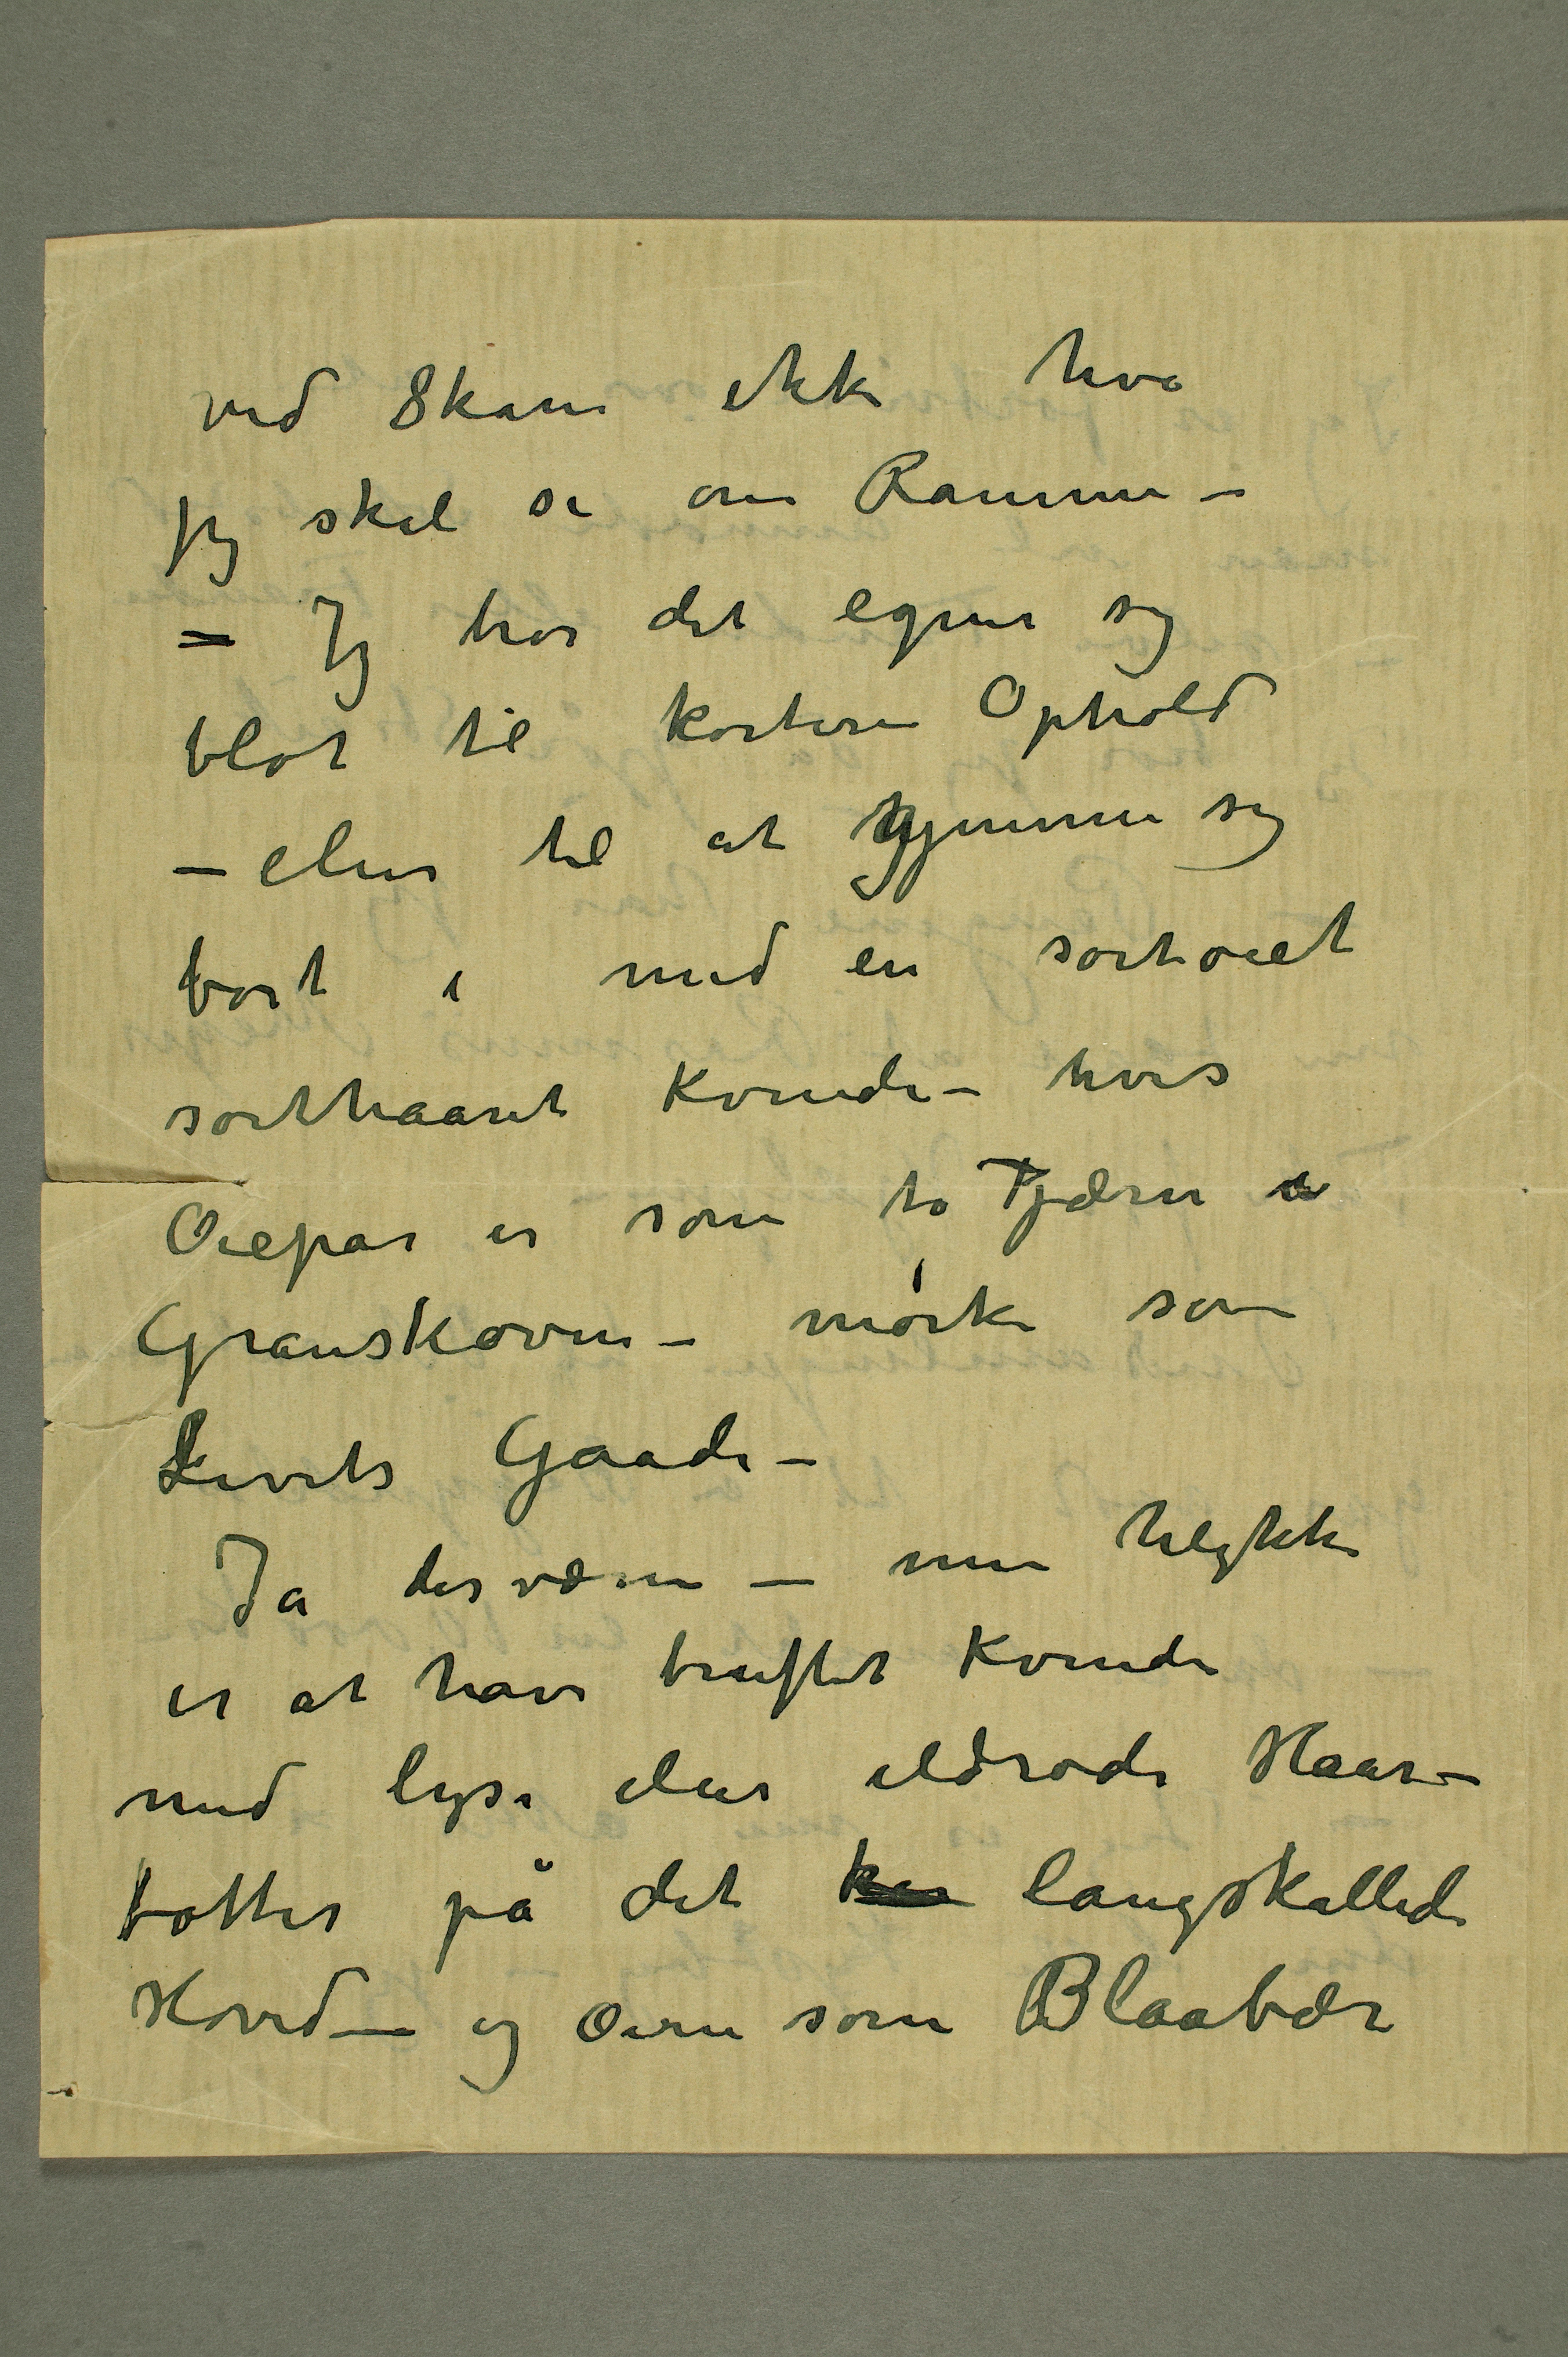 ved Skam ikke hva
jeg skal si om Ramme –
– Jeg tror det egner sig
blot til kortere Ophold
– eller til at gjemme sig
bort i med en sortøiet
sorthaaret Kvinde – hvis
Øiepar er som to Tjærn i
Granskoven – mørke som
Livets Gaade –
Ja desværre – min Ulykke
er at have truffet Kvinde
med lyse eller ildrøde Haar–
totter på det langskallede
Hoved – og Øine som Blaabær